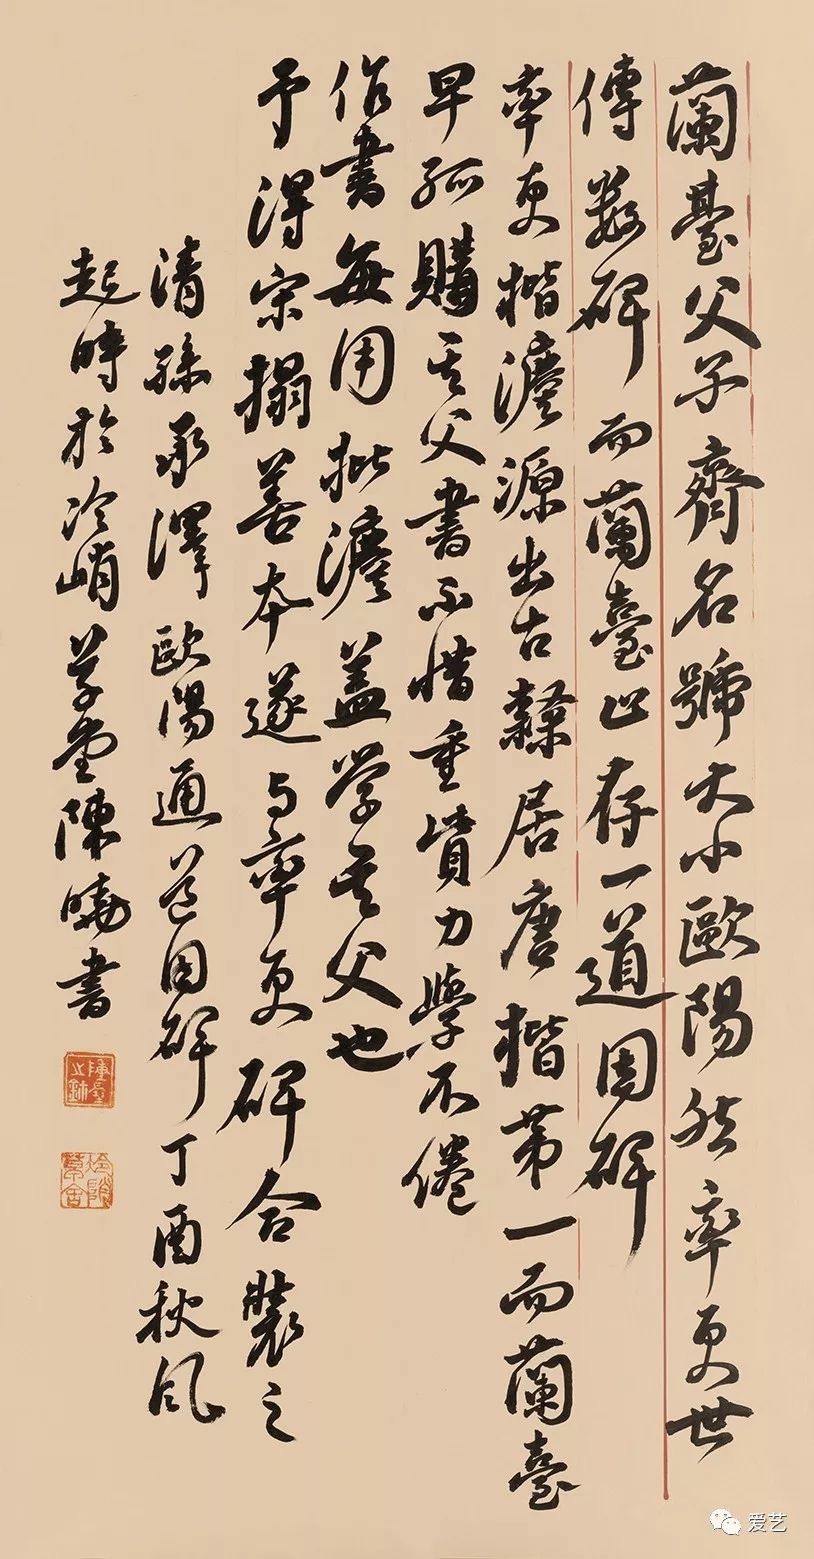 蘭臺父子齊名號大小歐陽然率更世
傳數碑而蘭臺止存一道因碑
率更楷灋源出古隸居唐楷第一而蘭臺
早孤購其父書不惜重貲力學不倦
作書每用批灋蓋学其父也
予得宋搨善本遂与率更碑合裝之
清孫承澤歐陽通道因碑丁酉秋風
起時於冷峭草堂陳曉書
爱艺